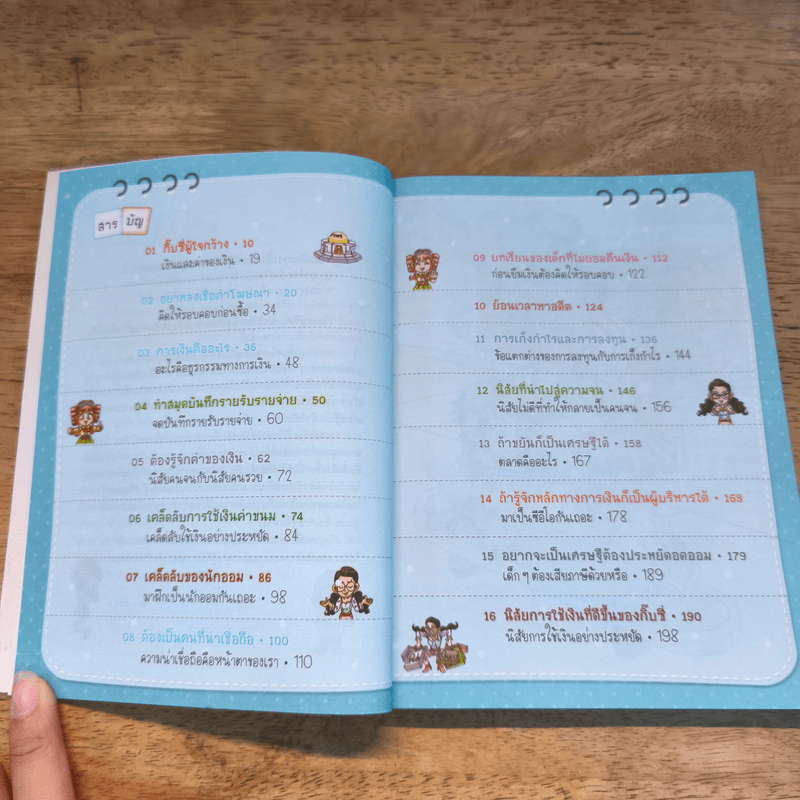 สารบัญ
01 กิ๊บซี่ผู้ใจกว้าง • 10
เงินและค่าของเงิน • 19
02 อย่าหลงเชื่อคำโฆษณา • 20
คิดให้รอบคอบก่อนซื้อ • 34
03 การเงินคืออะไร • 36
อะไรคือธุรกรรมทางการเงิน • 48
04 ทำสมุดบันทึกรายรับรายจ่าย • 50
จดบันทึกรายรับรายจ่าย • 60
05 ต้องรู้จักค่าของเงิน • 62
นิสัยคนจนกับนิสัยคนรวย • 72
06 เคล็ดลับการใช้เงินค่าขนม • 74
เคล็ดลับใช้เงินอย่างประหยัด • 84
07 เคล็ดลับของนักออม • 86
มาฝึกเป็นนักออมกันเถอะ • 98
08 ต้องเป็นคนที่น่าเชื่อถือ • 100
ความน่าเชื่อถือคือหน้าตาของเรา • 110
09 บทเรียนของเด็กที่ไม่ยอมคืนเงิน • 112
ก่อนยืมเงินต้องคิดให้รอบคอบ • 122
10 ย้อนเวลาหาอดีต • 124
11 การเก็งกำไรและการลงทุน • 136
ข้อแตกต่างของการลงทุนกับการเก็งกำไร • 144
12 นิสัยที่นำไปสู่ความจน • 146
นิสัยไม่ดีที่ทำให้กลายเป็นคนจน • 156
13 ถ้าขยันก็เป็นเศรษฐีได้ • 158
ตลาดคืออะไร • 167
14 ถ้ารู้จักหลักทางการเงินก็เป็นผู้บริหารได้ • 168
มาเป็นซีอีโอกันเถอะ • 178
15 อยากจะเป็นเศรษฐีต้องประหยัดอดออม • 179
เด็ก ๆ ต้องเสียภาษีด้วยหรือ • 189
16 นิสัยการใช้เงินที่ดีขึ้นของกิ๊บซี่ • 190
นิสัยการใช้เงินอย่างประหยัด • 198